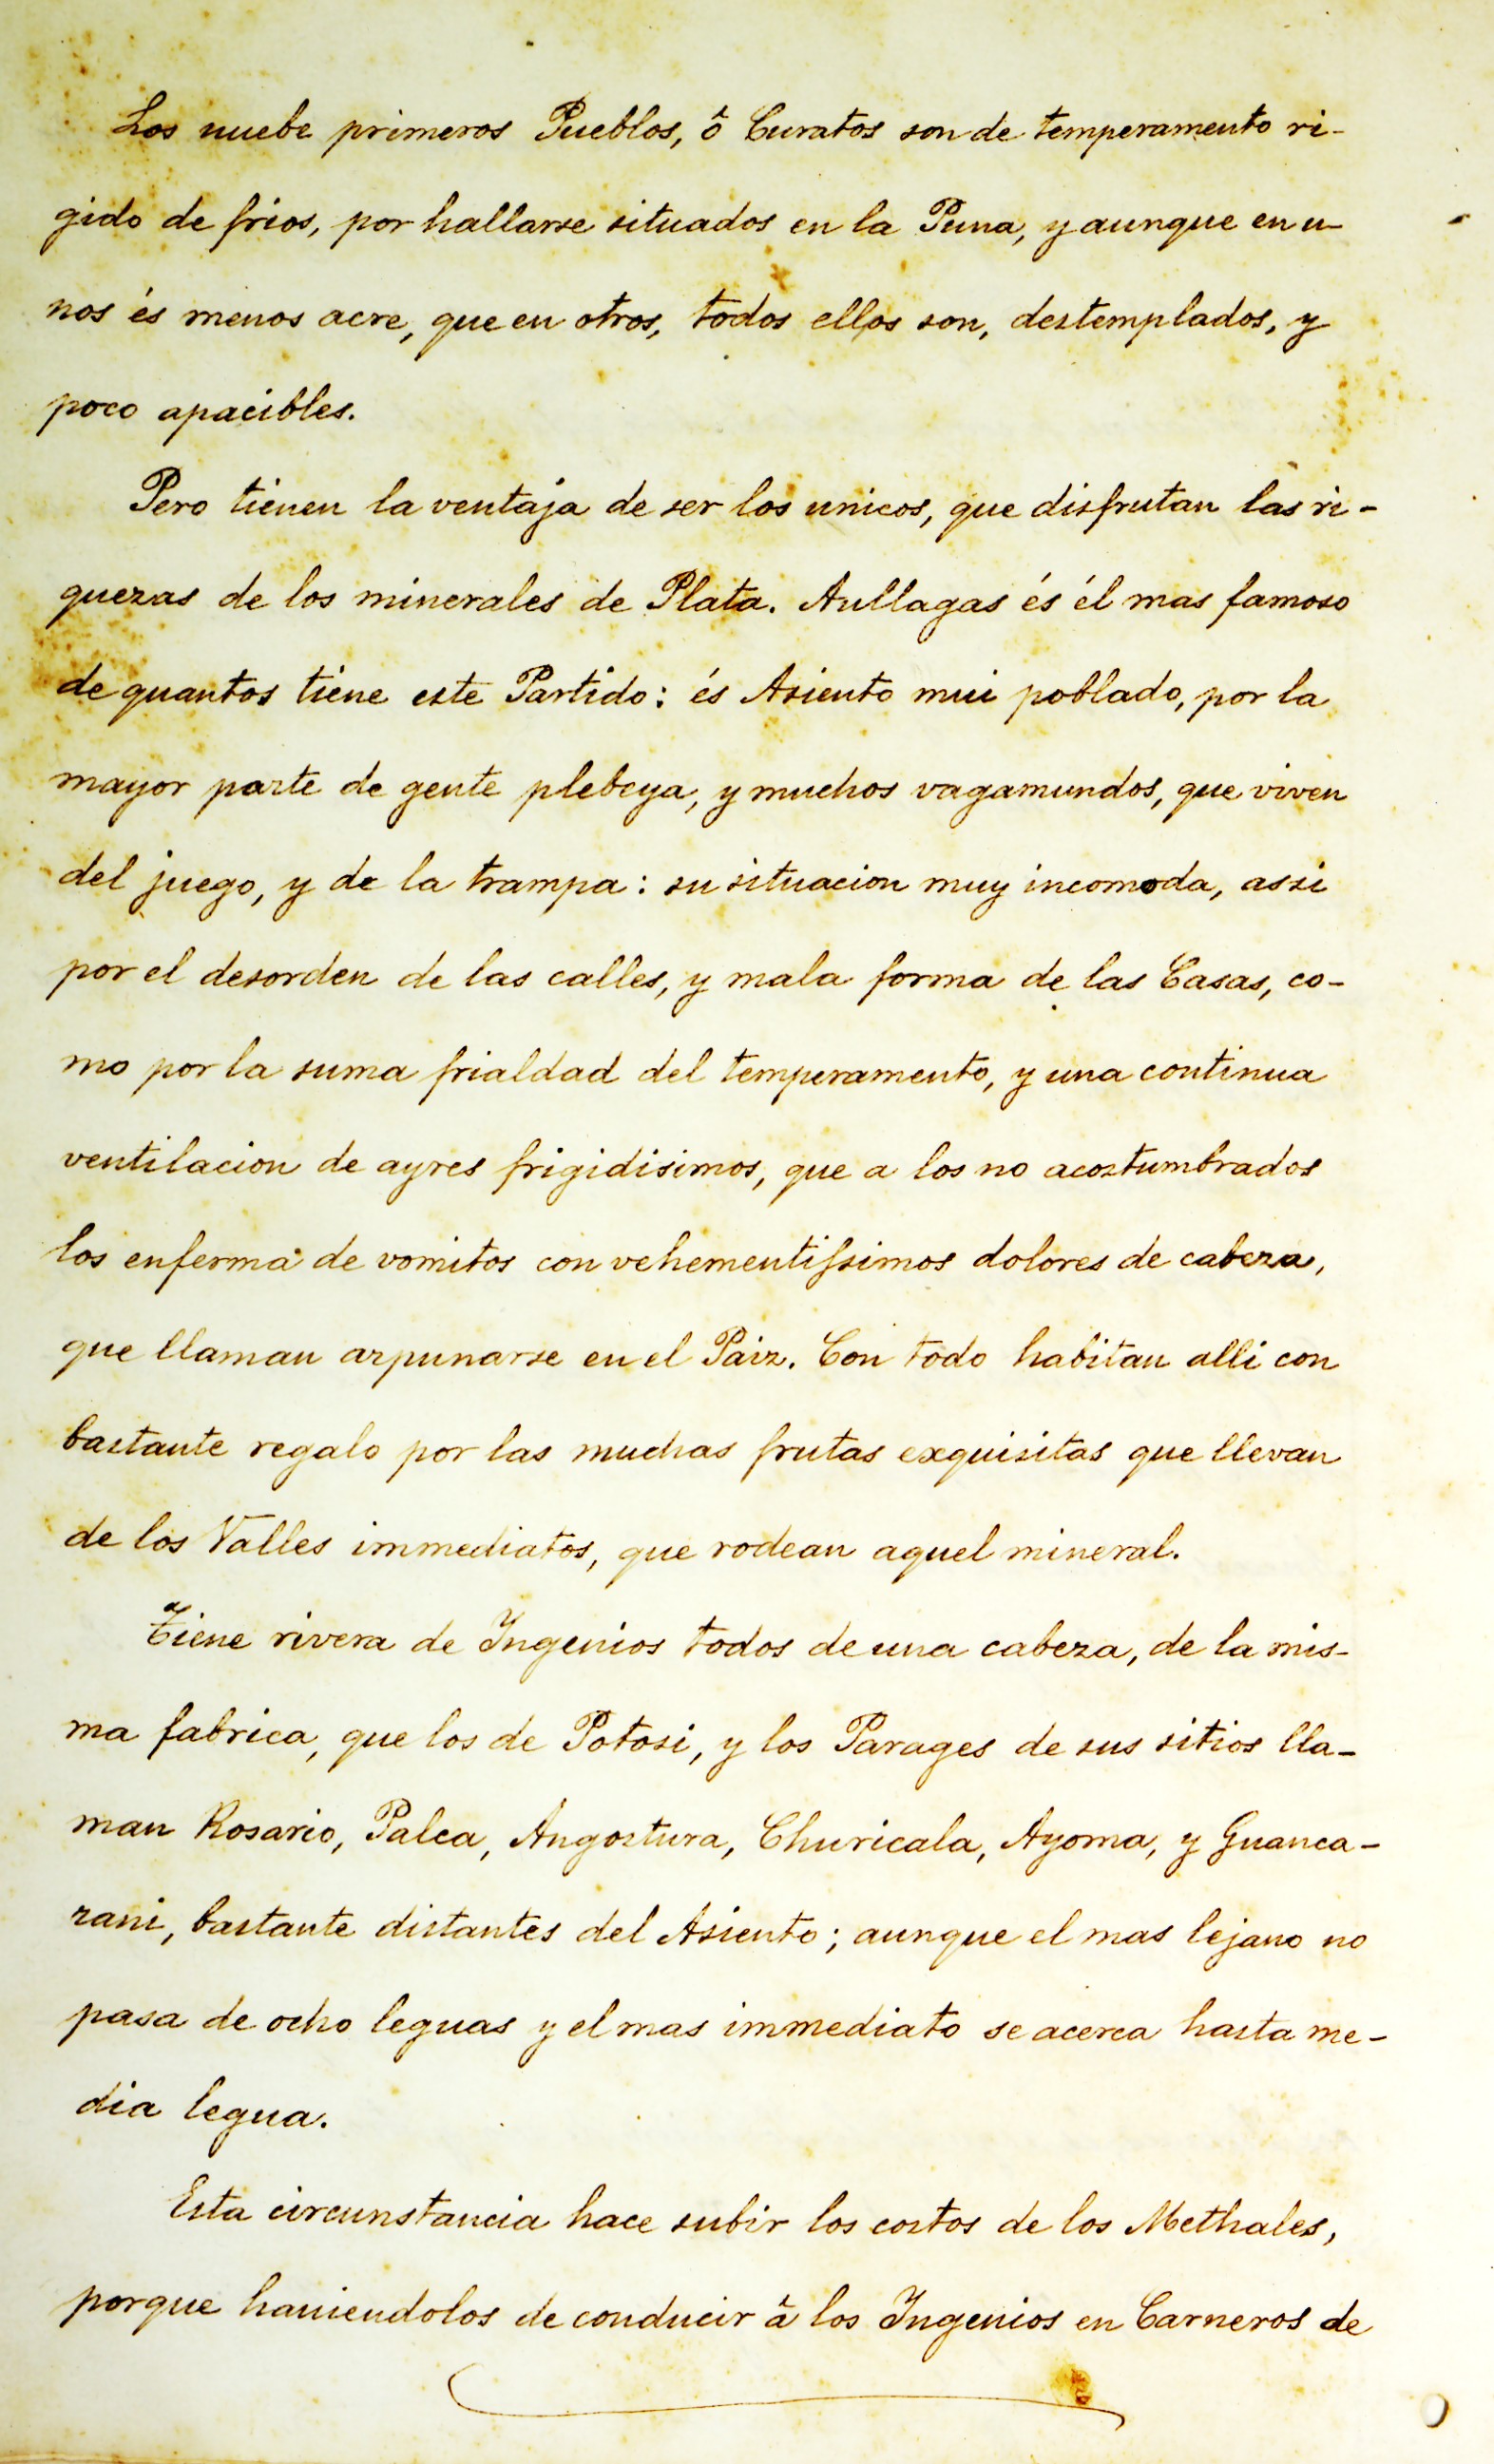 Los nuebe primeros Pueblos, ô Curatos son de temperamento ri-
gido de frios, por hallarse situados en la Puna, y aunque en u-
nos és menos acre, que en otros, todos ellos son, destemplados, y
poco apacibles.
Pero tienen la ventaja de ser los unicos, que disfrutan las ri-
quezas de los minerales de Plata. Aullagas és él mas famoso
de quantos tiene este Partido: és Asiento mui poblado, por la
mayor parte de gente plebeya, y muchos vagamundos, que viven
del juego, y de la trampa: su situacion muy incomoda, assi
por el desorden de las calles, y mala forma de las Casas, co-
mo por la suma frialdad del temperamento, y una continua
ventilacion de ayres frigidisimos, que a los no acostumbrados
los enferma de vomitos con vehementissimos dolores de cabeza,
que llaman azpunarse en el Paiz. Con todo habitan alli con
bastante regalo por las muchas frutas exquisitas que llevan
de los Valles immediatos, que rodean aquel mineral.
Tiene rivera de Ingenios todos de una cabeza, de la mis-
ma fabrica, que los de Potosi, y los Parages de sus sitios lla-
man Rosario, Palca, Angostura, Churicala, Ayoma, y Guanca-
rani, bastante distantes del Asiento; aunque el mas lejano no
pasa de ocho leguas y el mas immediato se acerca hasta me-
dia legua.
Esta circunstancia hace subir los costos de los Methales,
porque haviendolos de conducir â los Ingenios en Carneros de